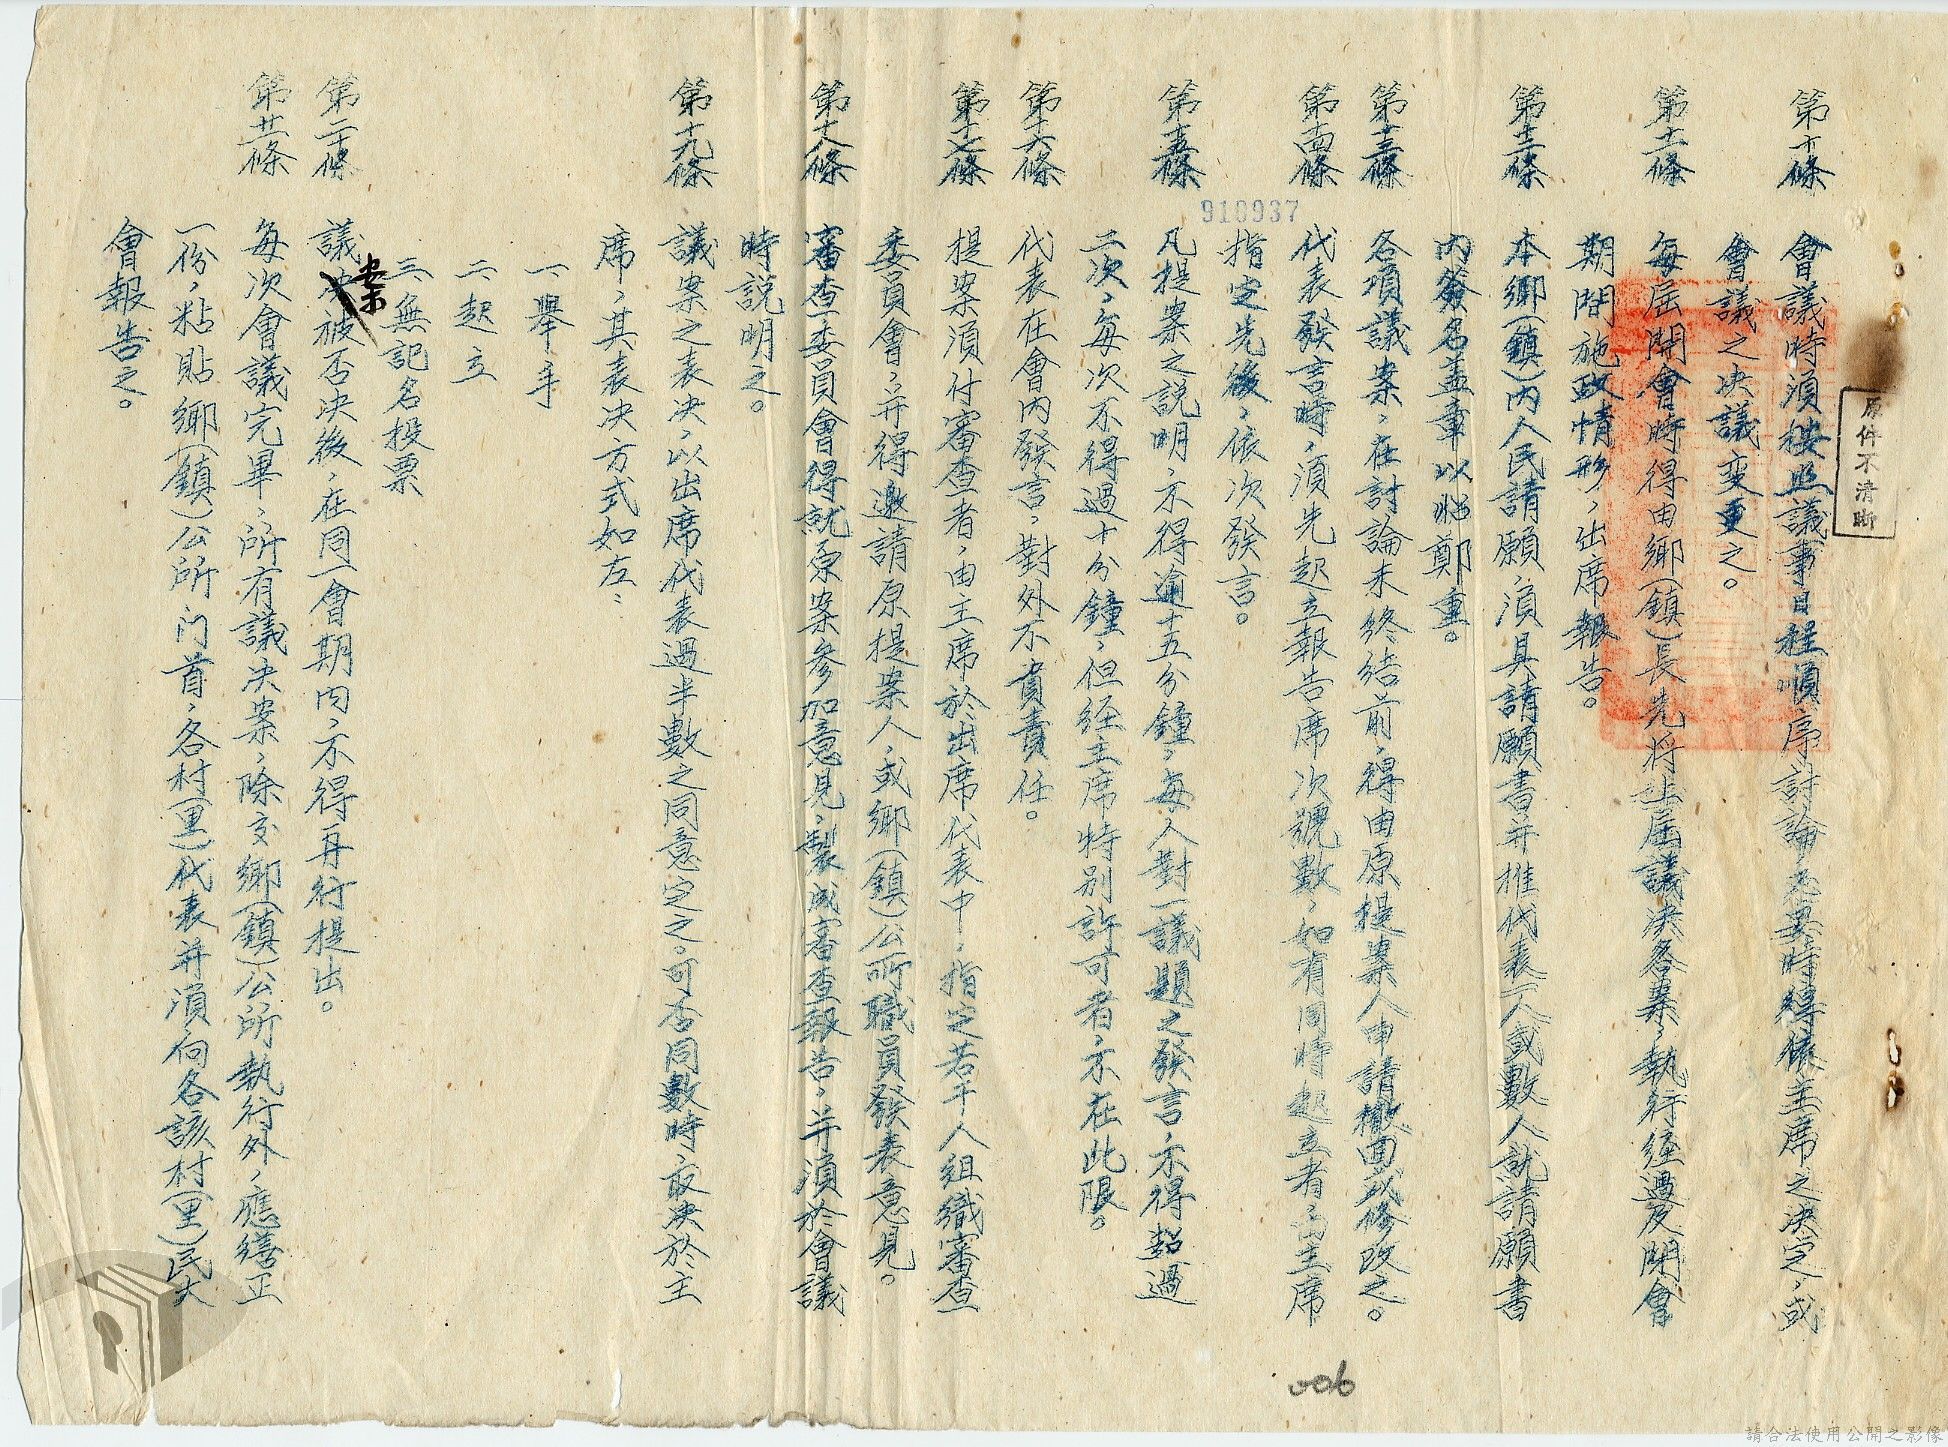 原件不清晰
第十條 會議時須按照議事日程順序討論必要時得依主席之決定，或
會議之決議變更之。
第十一條 每屆開會時得由鄉（鎮）長先將上屆議決各案，執行經過及閉會
期間施政情形，出席報告。
第十二條 本鄉（鎮）內人民請願，須具請願書并推代表一人或數人就請願書
內簽名蓋章以昭鄭重。
第十三條 各項議案，在討論未終結前，得由原提案人申請撤回或修改之。
第十四條 代表發言時，須先起立報告席次號數，如有同時起立者，由主席
指定先後，依次發言。
第十五條 凡提案之說明，不得逾十五分鐘，每人對一議題之發言，不得超過
二次，每次不得過十分鐘，但經主席特別許可者，不在此限。
第十六條 代表在會內發言，對外不負責任。
第十七條 提案須付審查者，由主席於出席代表中，指定若干人組織審查
委員會，并得邀請原提案人，或鄉（鎮）公所職員發表意見。
第十八條 審查委員會得就原案參加意見，製成審查報告，并須於會議
時說明之。
第十九條 議案之表決，以出席代表過半數之同意定之。可否同數時，取決於主
席，其表決方式如左：
一、舉手
二、起立
三、無記名投票
第二十條 議案被否決後，在同一會期內，不得再行提出。
第廿一條 每次會議完畢，所有議決案，除交鄉（鎮）公所執行外，應繕正
一份，粘貼鄉（鎮）公所門首，各村（里）代表并須向各該村（里）民大
會報告之。
910937
006
請合法使用公開之影像